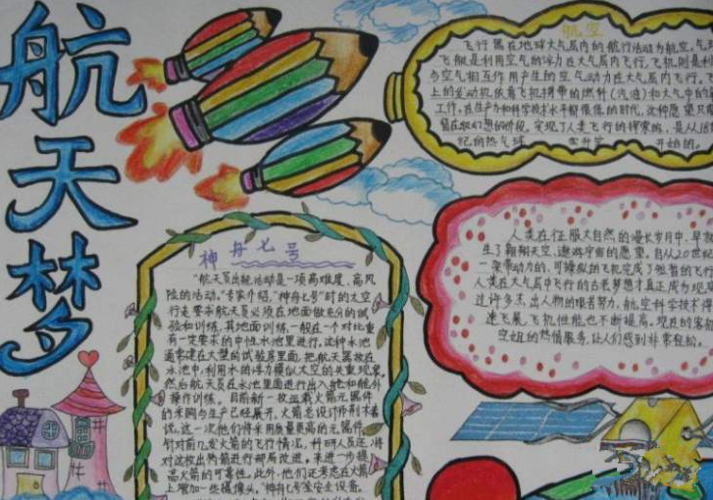 航天梦
神舟七号
"航天员出舱活动是一项高难度、高风
险的活动。"专家介绍,"神舟七号"时的太空
行走要求航天员必须在地面做充分的试
验和训练,其地面训练一般在一个对比重
有一定要求的中性水池里进行。这种水池
通常建在大型的试验房里面,把航天器放在
水池中,利用水的浮力模拟太空的失重现象。
然后航天员在水池里面进行出入舱和舱外
操作训练。目前新一枚运载火箭元器件
的采购与生产已经展开,火箭总设计师荆木春
说,这一次他们将采用质量更高的元器件,
针对前几发火箭的飞行情况,科研人员还将
对这枚火箭进行局部改进,来进一步提
高火箭的可靠性。此外,他们还考虑在火箭
上增加一些摄像头,"神舟七号"安全设备。
航空
飞行器在地球大气层内的航行活动为航空。气球
飞艇是利用空气的浮力在大气层内飞行,飞机则是利
与空气相互作用产生的空气动力在大气层内飞行。飞
上的发动机依靠飞机携带的燃料(汽油)和大气中的氧
工作。在生产力和科学技术水平都很低的时代,这种愿望只能
留在幻想的阶段。实现了人类飞行的探索的,是从
纪的热气球 开始的。
人类在征服大自然的漫长岁月中,早就
生了翱翔天空、遨游宇宙的愿望。自从20世纪
一架带动力的、可操纵的飞机完成了短暂的飞行
人类在大气层中飞行的古老梦想才真正成为现实
过许多杰出人物的艰苦努力,航空科学技术得
速飞展,飞机性能也不断提高。现在的客机
空姐的热情服务,让人们感到非常轻松。